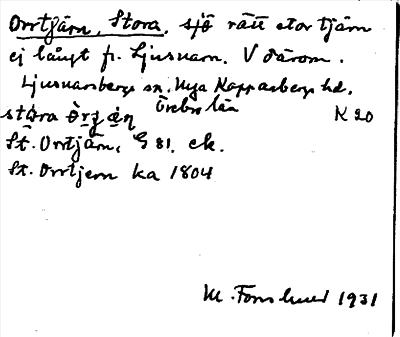 Orrtjärn, Stora, sjö rätt stor tjärn
ej långt fr. Ljusnarn. V därom.
Ljusnarsbergs sn. Nya Kopparbergs hd.
Örebro län
K 20
stóra òrʒạ̈n
St. Orrtjärn, G 81. ek.
St. Orrtjern ka 1804
M. 1931